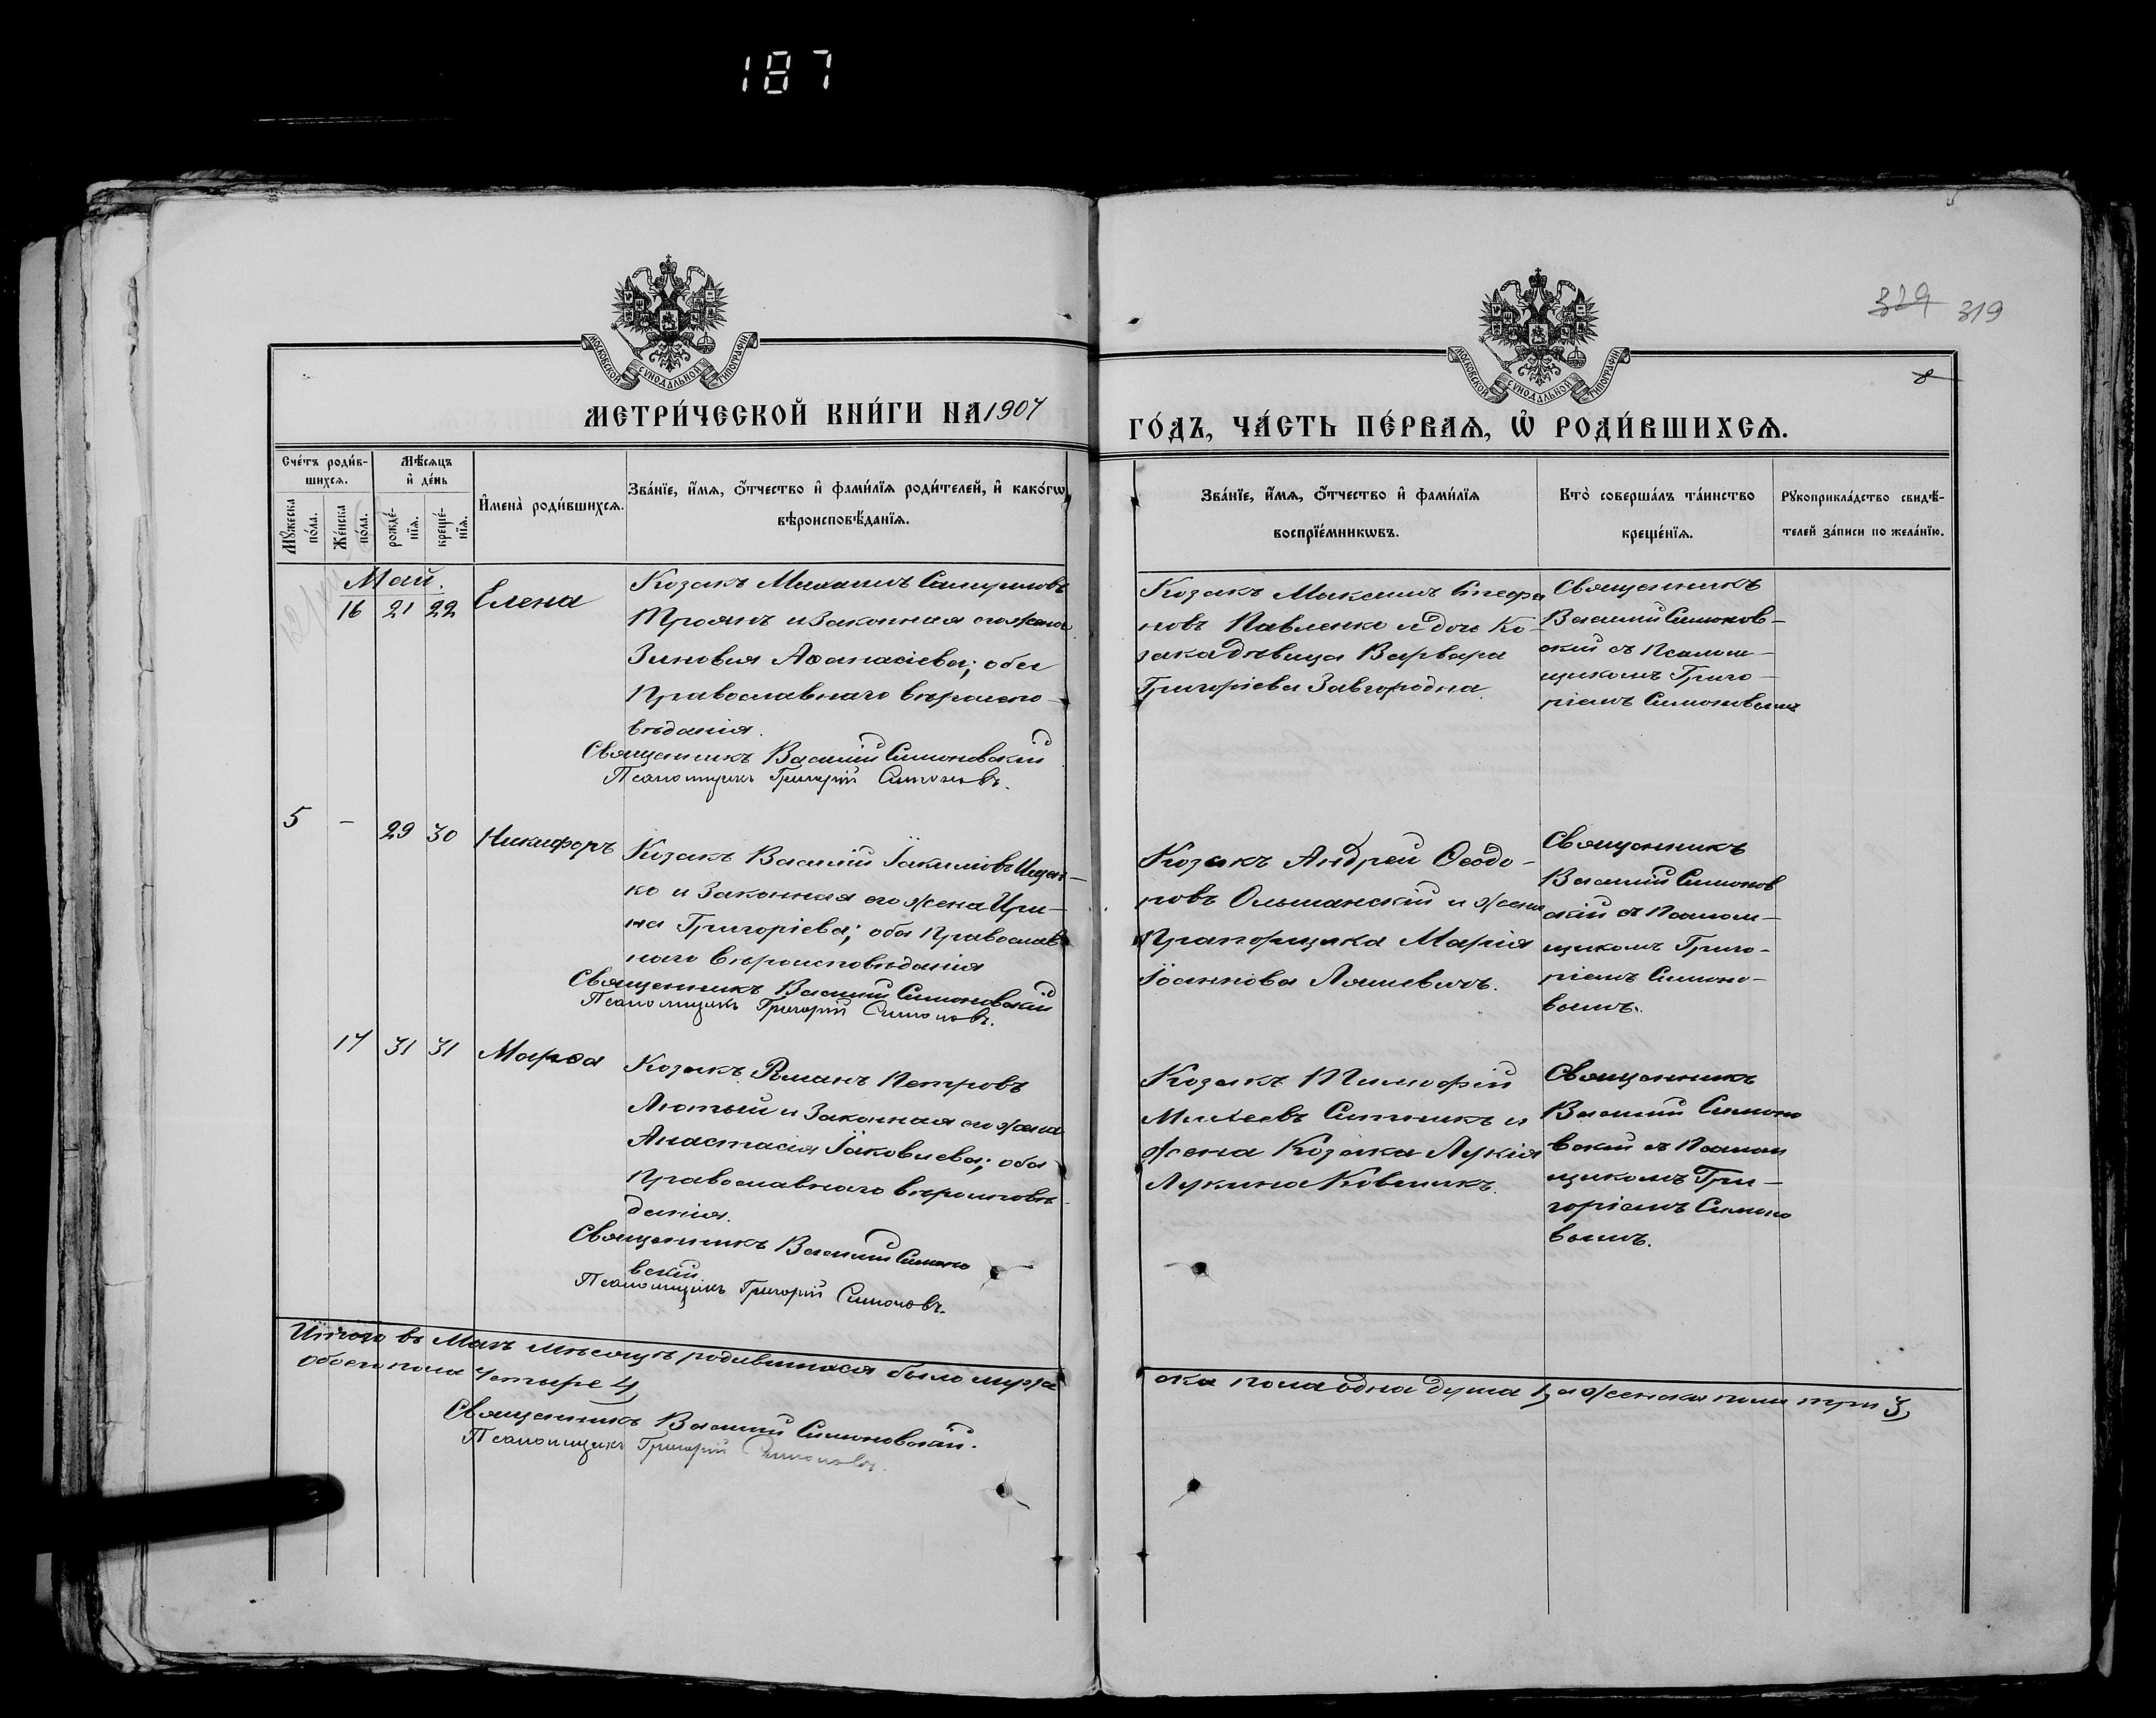 187
329 319
8
МОСКОВСКОЙ СѴНОДАЛЬНОЙ ТИПОГРАФІИ
МОСКОВСКОЙ СѴНОДАЛЬНОЙ ТИПОГРАФІИ
МЕТРИ́ЧЕСКОЙ КНИ́ГИ НА 1907
ГО́ДЪ, ЧА́СТЬ ПЕ́РВАѦ, Ѽ РОДИ́ВШИХСѦ.
Сче́тъ роди́в-
шихсѧ.
Мѣ́сѧцъ
и҆ де́нь
Мꙋ́жеска
по́ла.
Же́нска
по́ла.
рожде́-
нїѧ.
креще́-
нїѧ.
И҆мена̀ роди́вшихсѧ.
Зва́нїе, и҆́мѧ, ѻ҆́тчество и҆ фами́лїѧ роди́телей, и҆ како́гѡ
вѣроисповѣ́данїѧ.
Зва́нїе, и҆́мѧ, ѻ҆́тчество и҆ фами́лїѧ
воспрїе́мникѡвъ.
Кто̀ соверша́лъ та́инство
креще́нїѧ.
Рꙋкоприкла́дство свидѣ́-
телей за́писи по жела́нїю.
Май.
16 21 22 Елена
Козакъ Михаилъ Самуиловъ
Троянъ и законная его жена
Зиновия Аѳанасіева; оба
Православнаго вѣроиспо-
вѣданія.
Священникъ Василий Симоновский
Псаломщикъ Григорий Симоновъ.
Козакъ Максимъ Стефа
новъ Павленко и дочь Ко-
зака дѣвица Варвара
Григоріева Завгородна.
Священникъ
Василий Симонов-
ский съ Псалом-
щикомъ Григо-
ріемъ Симоновымъ
5 - 29 30 Никифоръ
Козакъ Василий Іакимовъ Ищен-
ко и Законная его жена Ири-
на Григоріева; оба Православ
наго вѣроисповѣданія
Священникъ Василий Симоновский
Псаломщикъ Григорий Симоновъ.
Козакъ Андрей Ѳеодо-
ровъ Ольшанский и жена
Прапорщика Марія
Іоаннова Ляшевичъ.
Священникъ
Василий Симонов
ский съ Псалом-
щикомъ Григо-
ріемъ Симоно-
вымъ.
17 31 31 Марѳа
Козакъ Романъ Петровъ
Лютый и Законная его жена
Анастасія Іаковлева; оба
Православнаго вѣроисповѣ-
данія.
Священникъ Василий Симоно
вский
Псаломщикъ Григорий Симоновъ.
Козакъ Тимоѳій
Михеевъ Ситникъ и
жена Козака Лукія
Лукина Ковшикъ.
Священникъ
Василий Симоно
вский съ Псалом
щикомъ Гри-
горіемъ Симоно
вымъ.
Итого въ Маѣ мѣсяцѣ родившихся было муже
ска пола одна душа 1, а женска пола три 3,
обоего пола четыре 4,
Священникъ Василий Симоновский.
Псаломщикъ Григорий Симоновъ.